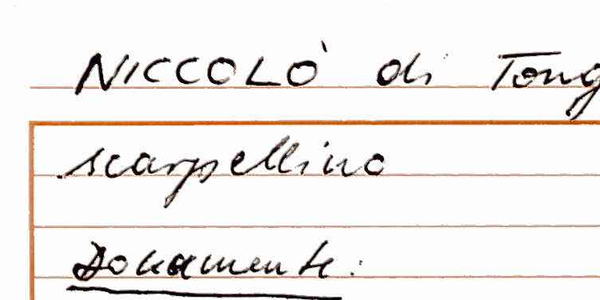 NICCOLÒ di Tong
scarpellino
Dokumente: